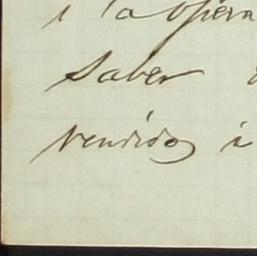 i la
saber
vendidos i